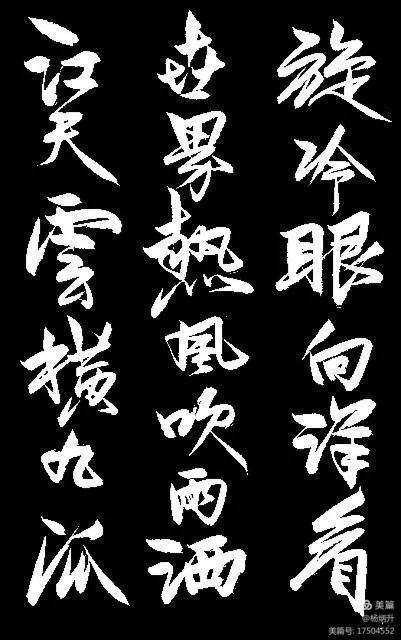 旋冷眼向洋看
世界熱風吹雨洒
江天雲橫九派
美篇
@杨炳升
美篇号: 17504552